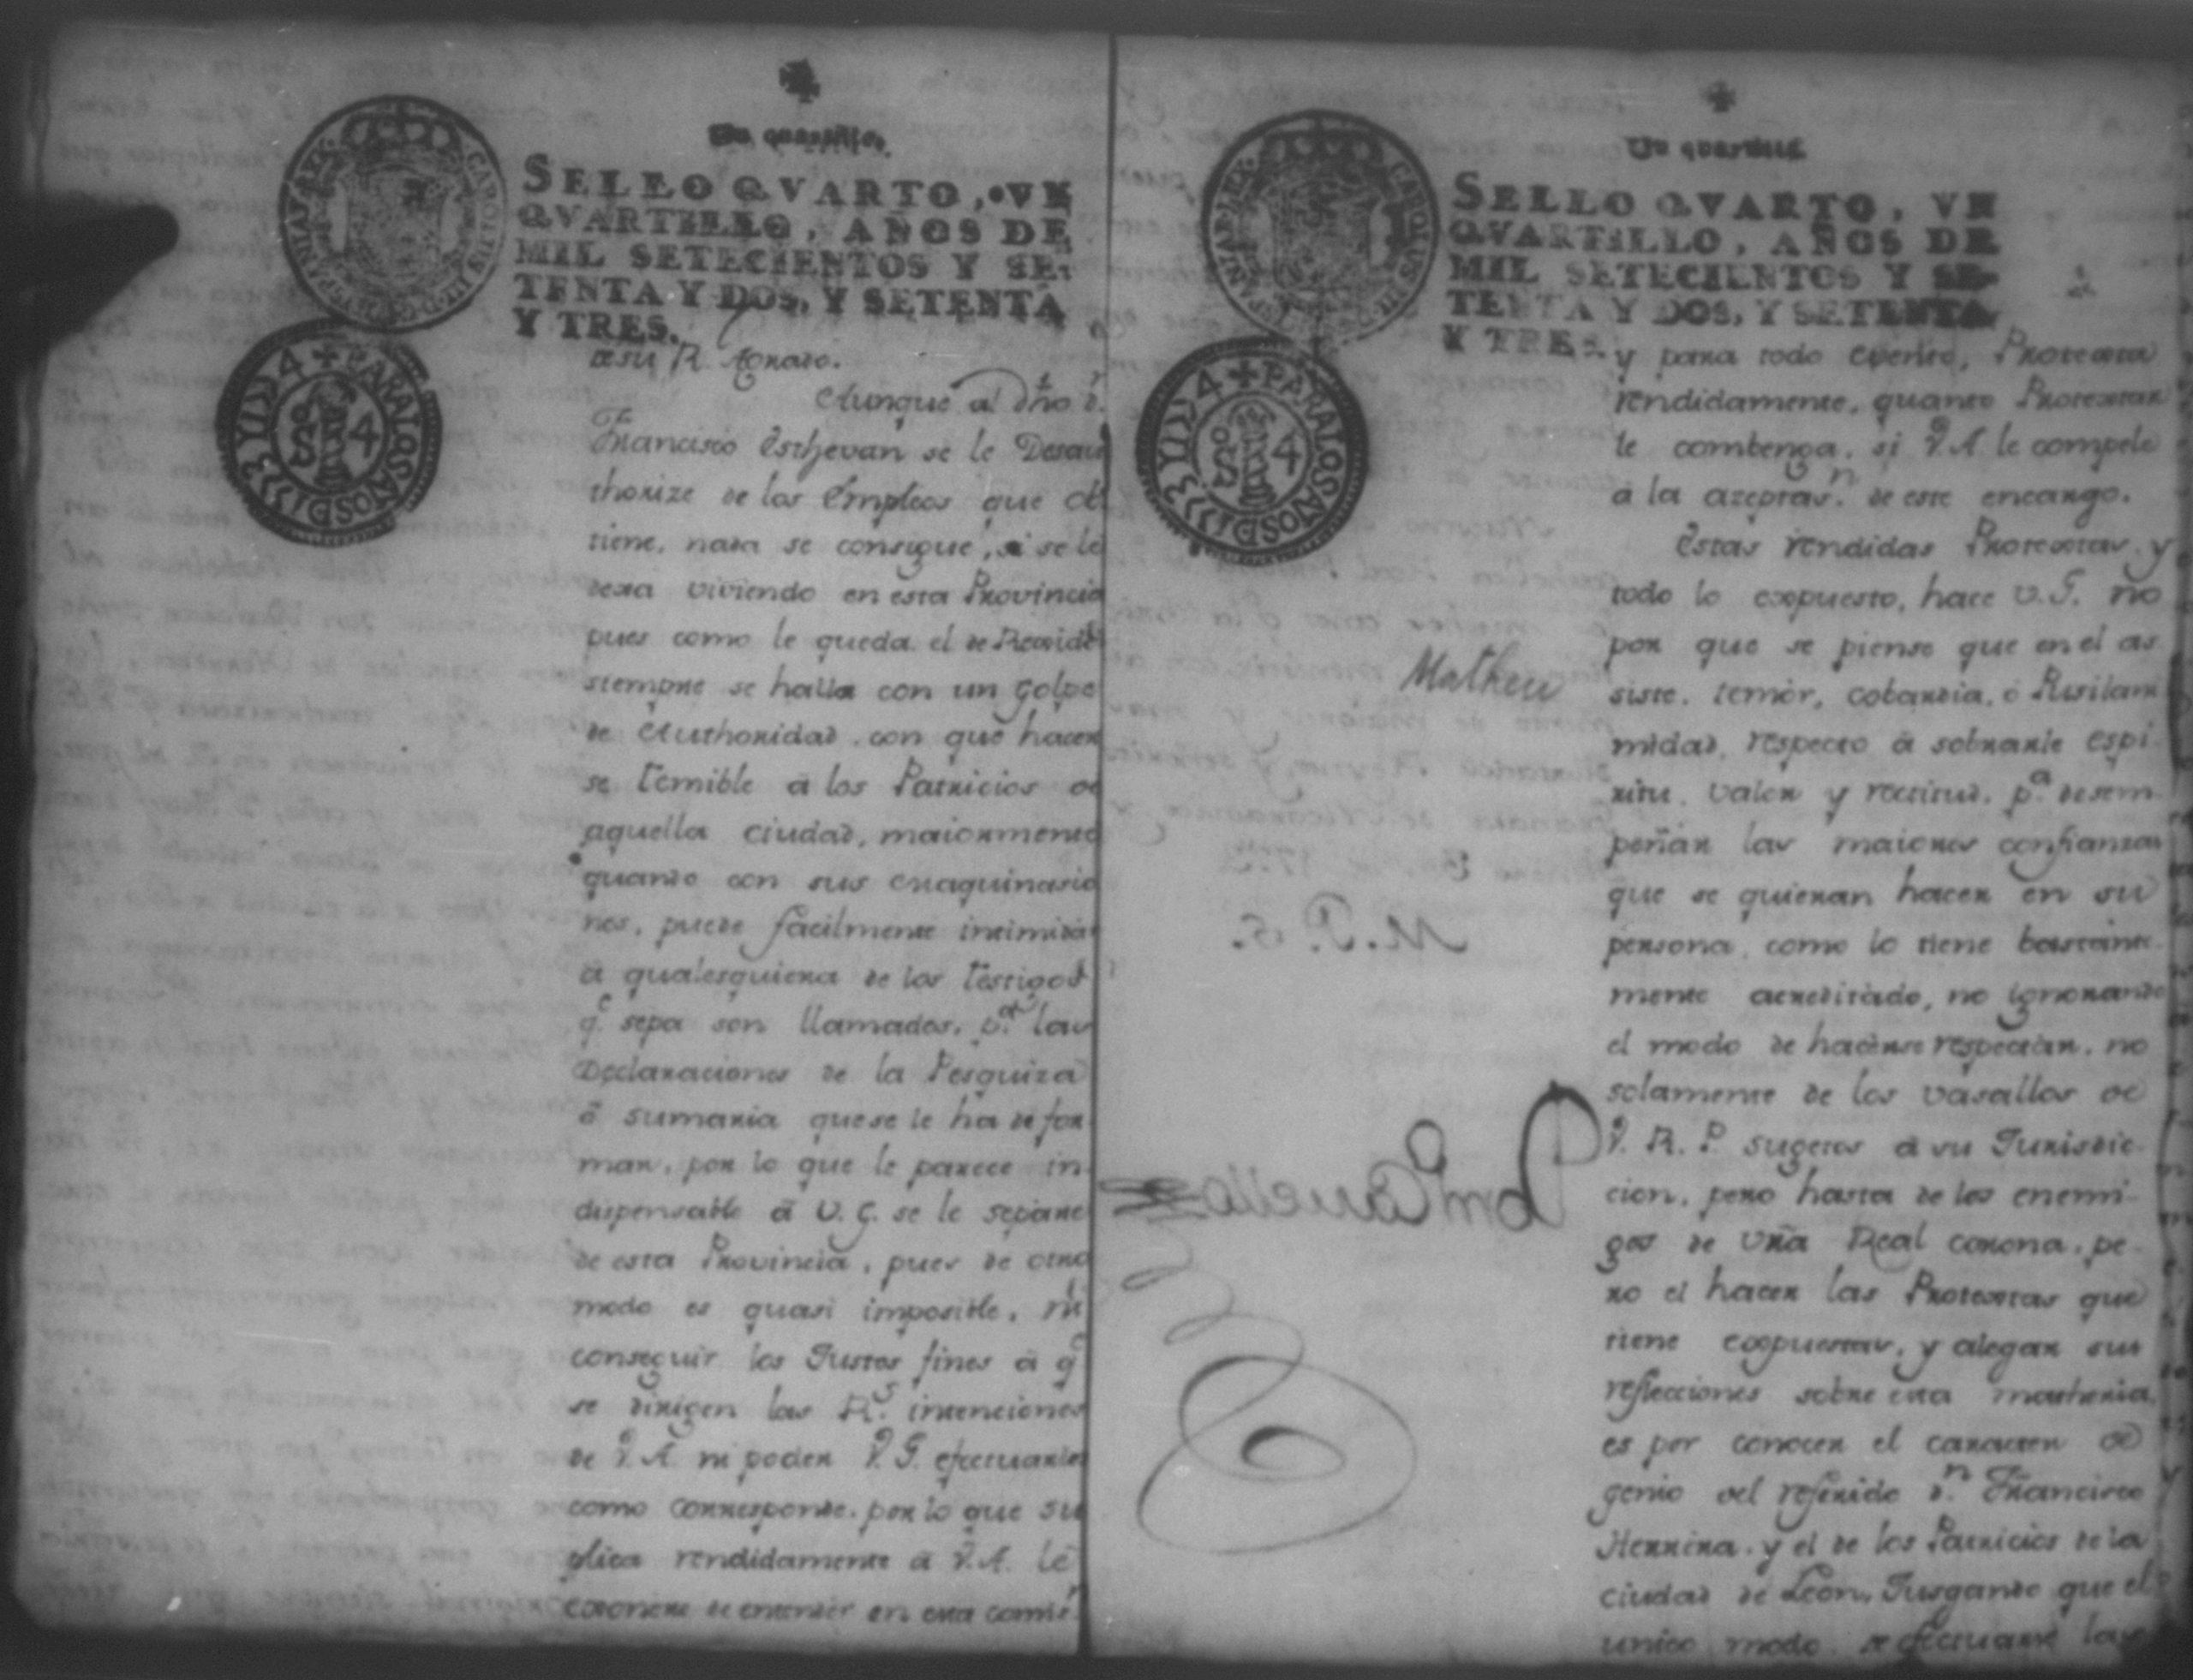 Un quartillo.
SELLO QVARTO, VN
QVARTILLO, AÑOS DE
MIL SETECIENTOS Y SE-
TENTA Y DOS, Y SETENTA
Y TRES.
CAROLUS III D G HISPANIAR REX
PARA LOS AÑOS D 1773 Y 1774
S 4
de su R. Agrado.
Aunque al dho dr
Francisco Esthevan se le Desau
thorize de los Empleos que ob
tiene, nada se consigue, si se le
dexa viviendo en esta Provincia
pues como le queda el de Regidor
siempre se halla con un golpe
de Authoridad con que hacer
se temible á los Patricios de
aquella ciudad, maiormente
quando con sus maquinacio
nes, puede facilmente intimidar
á qualesquiera de los testigos
qe. sepa son llamados, pa. las
Declaraciones de la Pesquiza
ó sumaria que se le ha de for
mar, por lo que le parece in
dispensable á V. G. se le separe
de esta Provincia, pues de otro
modo es quasi imposible, ni
conseguir los Justos fines á qe
se dirigen las Rs. intenciones
de V. A. ni poder V. G. efectuarlos
como corresponde, por lo que su
plica rendidamente á V. A. le
exonere de entender en esta comis
Un quartillo
SELLO QVARTO, VN
QVARTILLO, AÑOS DE
MIL SETECIENTOS Y SE-
TENTA Y DOS, Y SETENTA
Y TRES.
CAROLUS III D G HISPANIAR REX
PARA LOS AÑOS D 1773 Y 1774
S 4
Matheu
y para todo evento, Protexta
rendidamente, quanto Protextar
le combenga, si V. A. le compele
a la azeptasn. de este encargo.
Estas rendidas Protextas, y
todo lo expuesto, hace V. G. no
por que se piense que en el as
siste, temor, cobardia, ó Pusilani
midad, respecto á sobrarle espi
ritu, valor y rectitud, pa. desem
peñar las maiores confianzas
que se quieran hacer en su
persona, como lo tiene bastante-
mente acreditado, no ignorando
el modo de hacerse respectar, no
solamente de los vasallos de
V. R. P. sugetos á su Jurisdic-
cion, pero hasta de los enemi-
gos de Vra Real corona, pe-
ro el hacer las Protextas que
tiene expuestas, y alegar sus
reflecciones sobre esta matheria,
es por conocer el caracter de
genio del referido dn. Francisco
Herrera, y el de los Patricios de la
ciudad de Leon, Jusgando que el
unico modo de efectuarse las